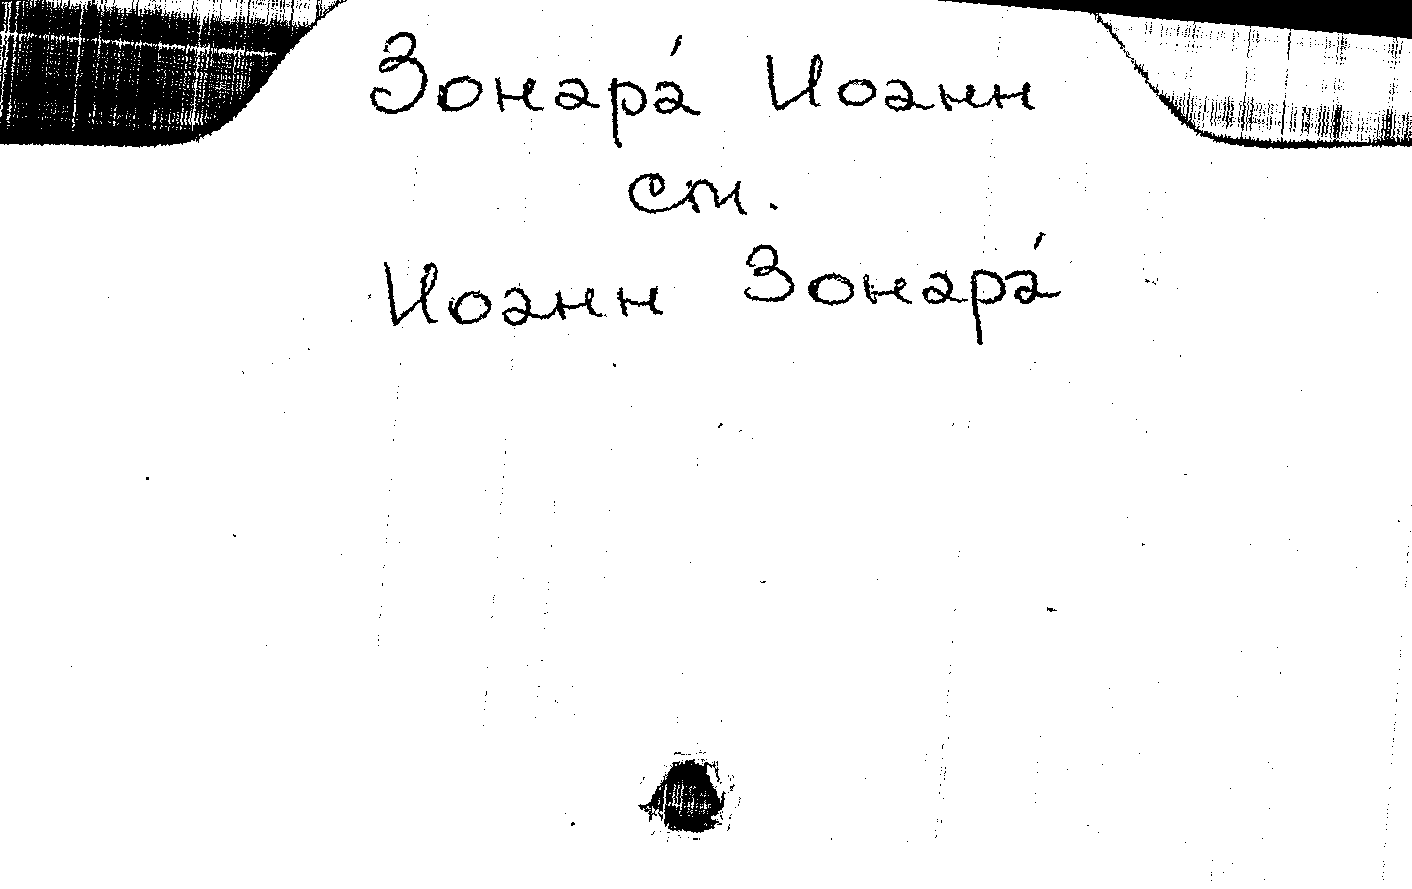 Зонара́ Иоанн
см.
Иоанн Зонара́